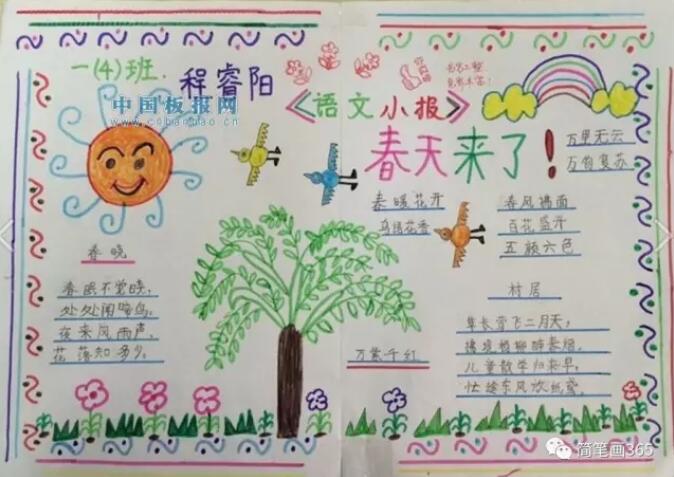 一(4)班.
程睿阳
中国板报网
www.cnbanbao.cn
《语文小报》
春天来了！
万里无云
万物复苏
春暖花开
鸟语花香
春风拂面
百花盛开
五颜六色
春晓
春眠不觉晓,
处处闻啼鸟。
夜来风雨声,
花落知多少。
万紫千红
村居
草长莺飞二月天,
拂堤杨柳醉春烟。
儿童散学归来早,
忙趁东风放纸鸢。
简笔画365